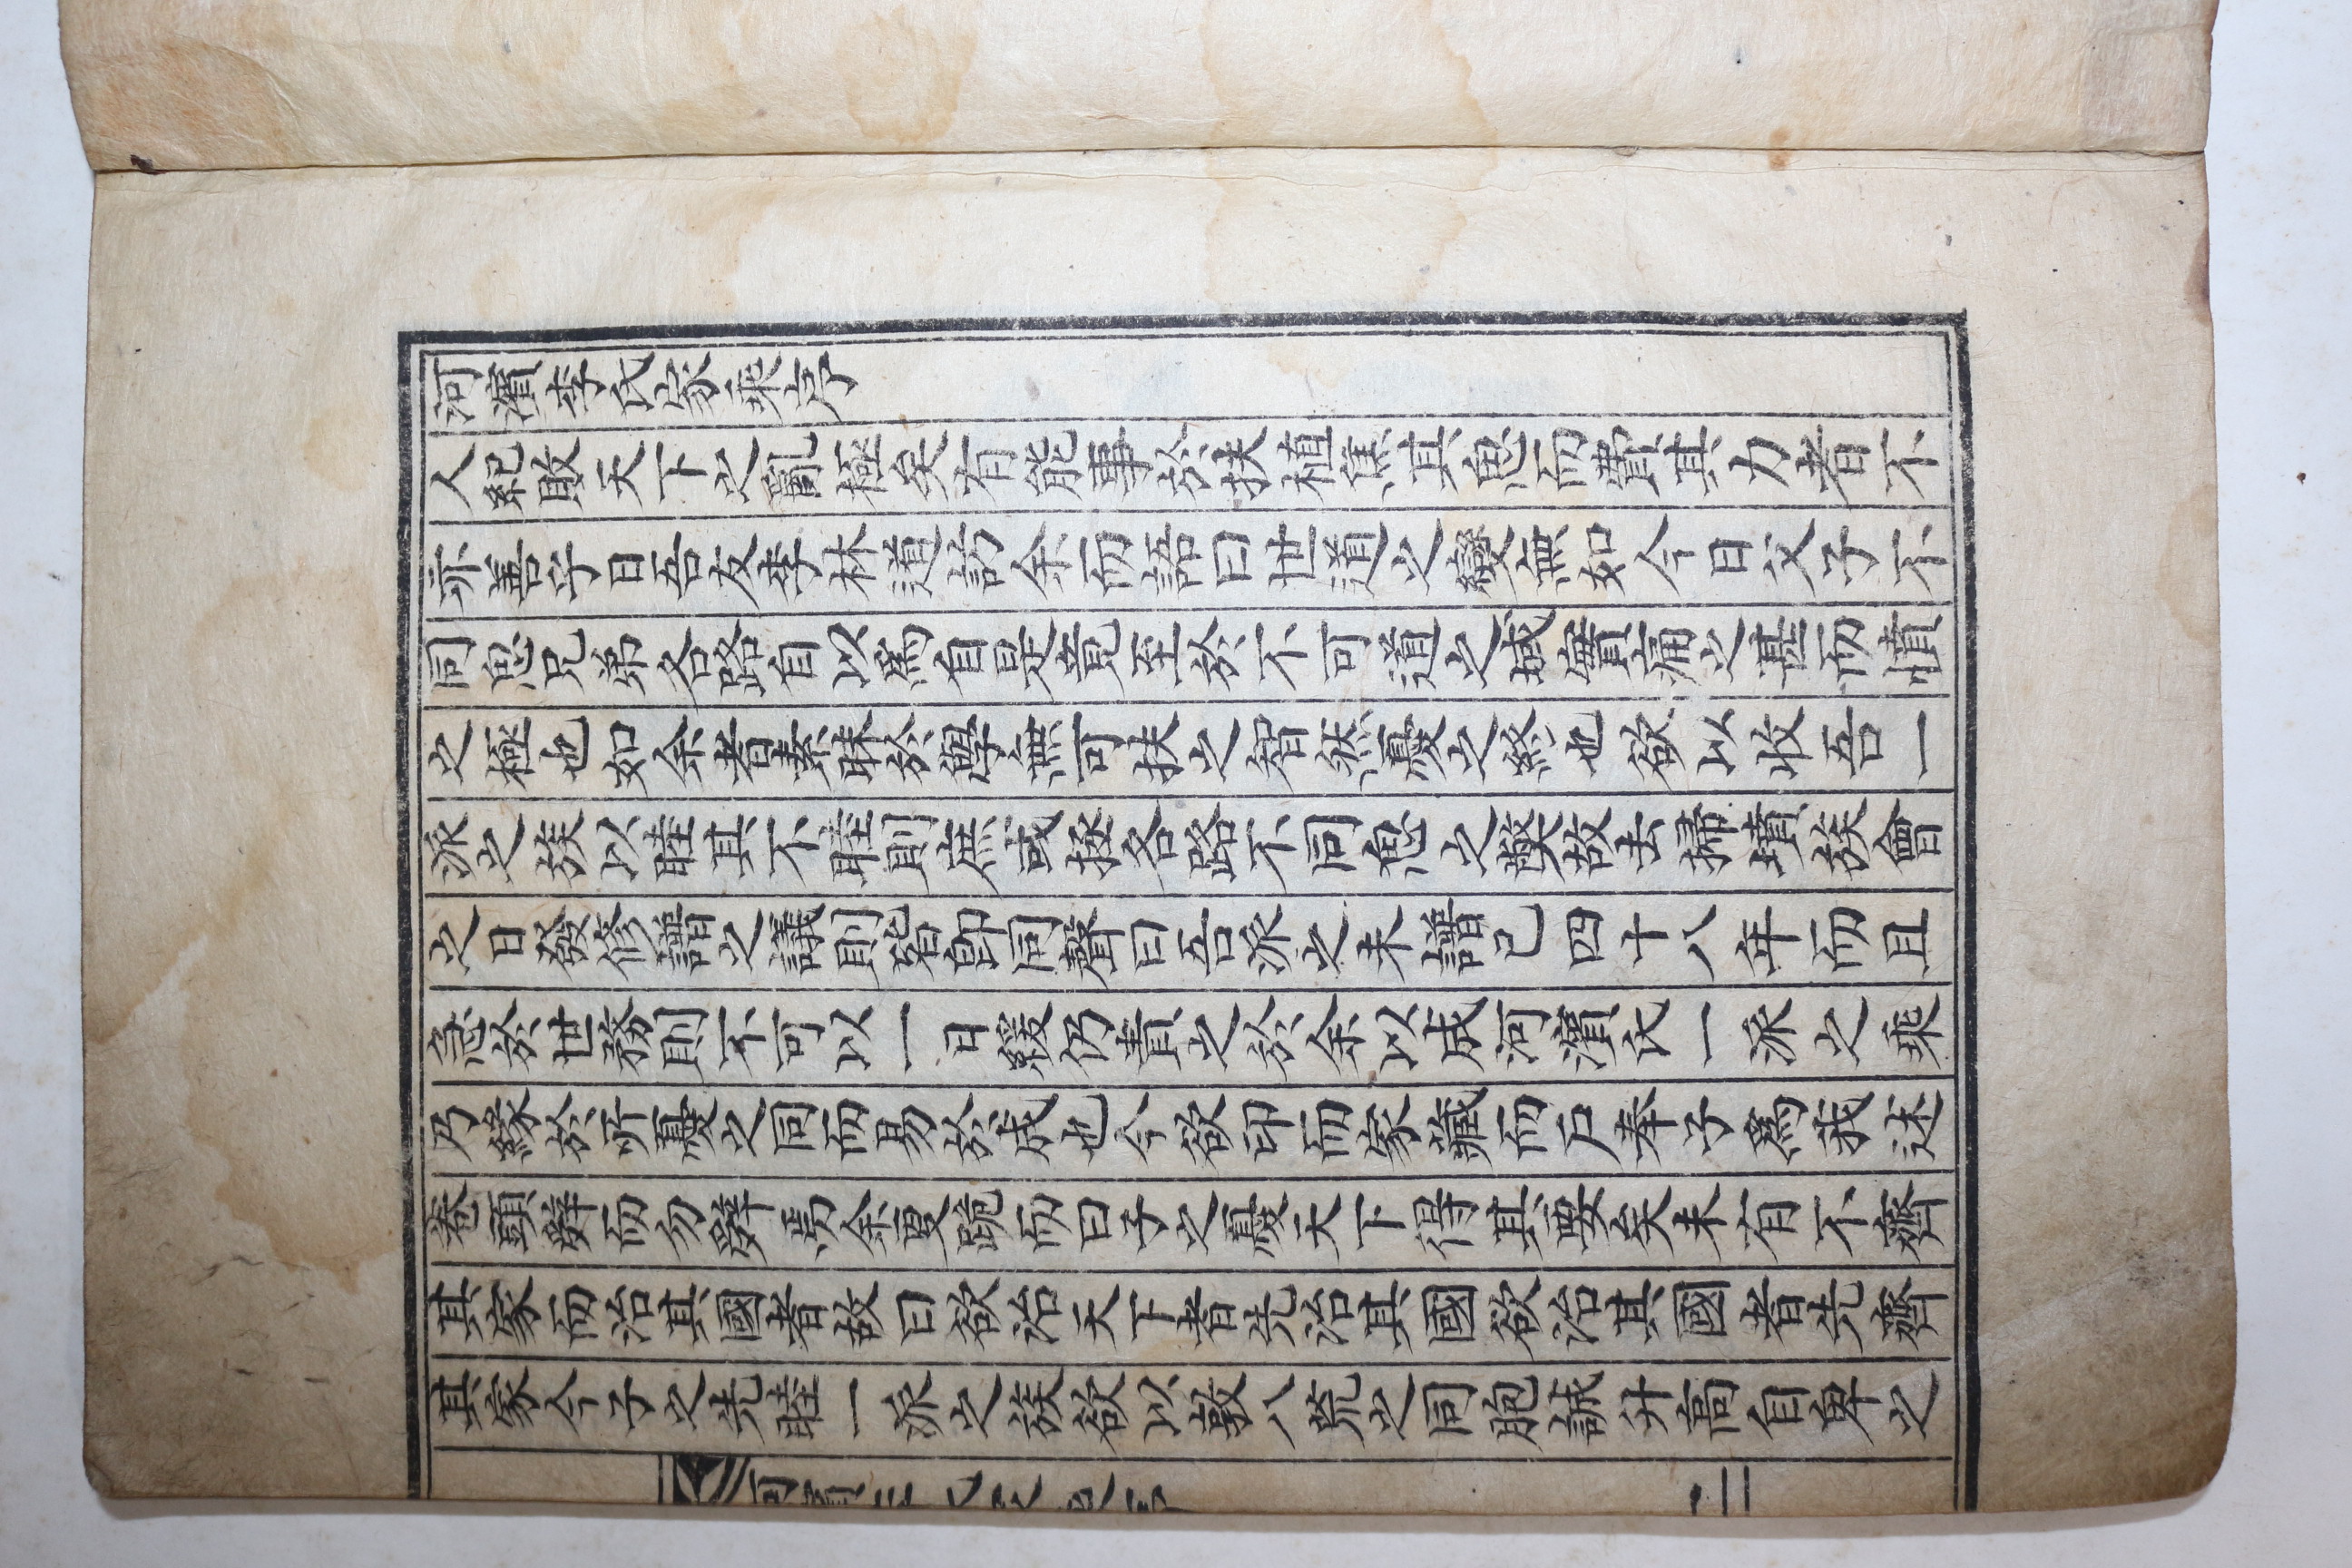 河濱李氏家乘序
人紀敗天下之亂極矣有能事於扶植焦其思而費其力者不
亦善乎日吾友李林道訪余而語曰世道之變無如今日父子不
同恖兄弟各路自以爲自是竟至於不可道之域實痛之甚而憤
之極也如余者素昧於學無可扶之智然憂之終也欲以收吾一
派之族以睦其不睦則庶或拯各路不同恖之獘故去掃墳族會
之日發修譜之議則皆卽同聲曰吾派之未譜已四十八年而且
急於世務則不可以一日緩仍責之於余以成河濱氏一派之乘
乃緣於所憂之同而易於成也今欲印而家藏而戶奉子爲我述
卷頭辤而勿辤焉余更跪而曰子之憂天下得其要矣未有不齊
其家而治其國者故曰欲治天下者先治其國欲治其國者先齊
其家今子之先睦一派之族欲以敦八荒之同胞誠升高自卑之
河濱李氏家乘序
二